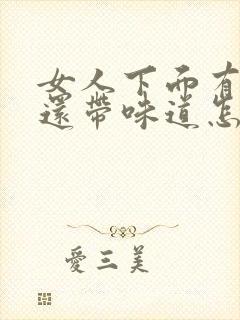 女人下面有
還帶味道怎
愛三美